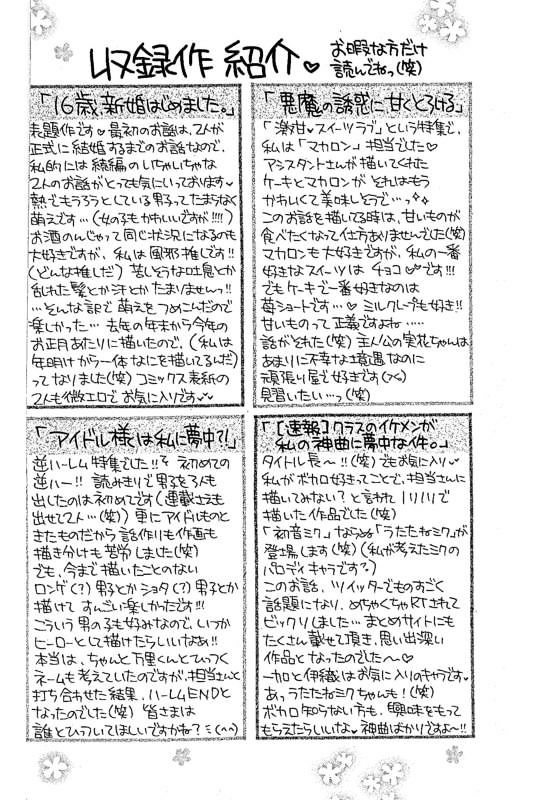 収録作紹介♥
お暇な方だけ
読んでねっ(笑)
「16歳、新婚はじめました。」
表題作です♥最初のお話は、2人が
正式に結婚するまでのお話なので、
私的には続編のいちゃいちゃな
2人のお話がとっても気にいっております♥
熱でもうろうとしている男子ってたまらなく
萌えです…(女の子もかわいいですが!!!!)
お酒のんじゃって同じ状況になるのも
大好きですが、私は風邪推しです!!
(どんな推しだ) 苦しそうな吐息とか
乱れた髪とか汗とかたまりませんっ!!
…そんな訳で萌えをつめこんだので
楽しかった… 去年の年末から今年の
お正月あたりに描いたので、(私は
年明けから一体なにを描いてるんだ)
ってなりました(笑)コミックス表紙の
2人も微エロでお気に入りです♥
「悪魔の誘惑に甘くとろける」
「激甘♥スイーツラブ」という特集で、
私は「マカロン」担当でした♡
アシスタントさんが描いてくれた
ケーキとマカロンがそれはもう
かわいくて美味しそうで…✧✧
このお話を描いてる時は、甘いものが
食べたくなって仕方ありませんでした(笑)
マカロンも大好きですが、私の一番
好きなスイーツはチョコ♡です!!!
でもケーキで一番好きなのは
苺ショートです…♡ミルクレープも好き!!
甘いものって正義ですよね……
話がそれた(笑)主人公の実花ちゃんは
あまりに不幸な境遇なのに
頑張り屋で好きです(つく)
見習いたい…っ(笑)
「アイドル様は私に夢中?!」
逆ハーレム特集でした!!そ初めての
逆ハー!! 読みきりで男を3人も
出したのは初めてです(連載さえも
出せて2人…(笑))更にアイドルものと
きたものだから話作りも作画も
描き分けも苦労しました(笑)
でも、今まで描いたことのない
ロンゲ(?)男子とかショタ(?)男子とか
描けてすんごい楽しかったです!!!
こういう男の子も好みなので、いつか
ヒーローとして描けたらいいなぁ!!
本当は、ちゃんと万里くんとくっつく
ネームも考えていたのですが、担当さんと
打ち合わせた結果、ハーレムENDと
なったのでした(笑) 皆さまは
誰とくっついてほしいですかね?ミ(^^)
「[速報]クラスのイケメンが
私の神曲に夢中な件。」
タイトル長〜!!(笑)でもお気に入り♥
私がボカロ好きってことで、担当さんに
描いてみない?と言われノリノリで
描いた作品でした(笑)
「初音ミク」ならぬ「うたたねミク」が
登場します(笑)(私が考えたミクの
パロディキャラです?)
このお話、ツイッターでものすごく
話題になり、めちゃくちゃRTされて
ビックリしました…まとめサイトにも
たくさん載せて頂き、思い出深い
作品となったのでした〜♡
一加と伊織はお気に入りのキャラです♥
あ、うたたねミクちゃんも!(笑)
ボカロ知らない方も、興味をもって
もらえたらいいな♥神曲ばかりですよ〜!!